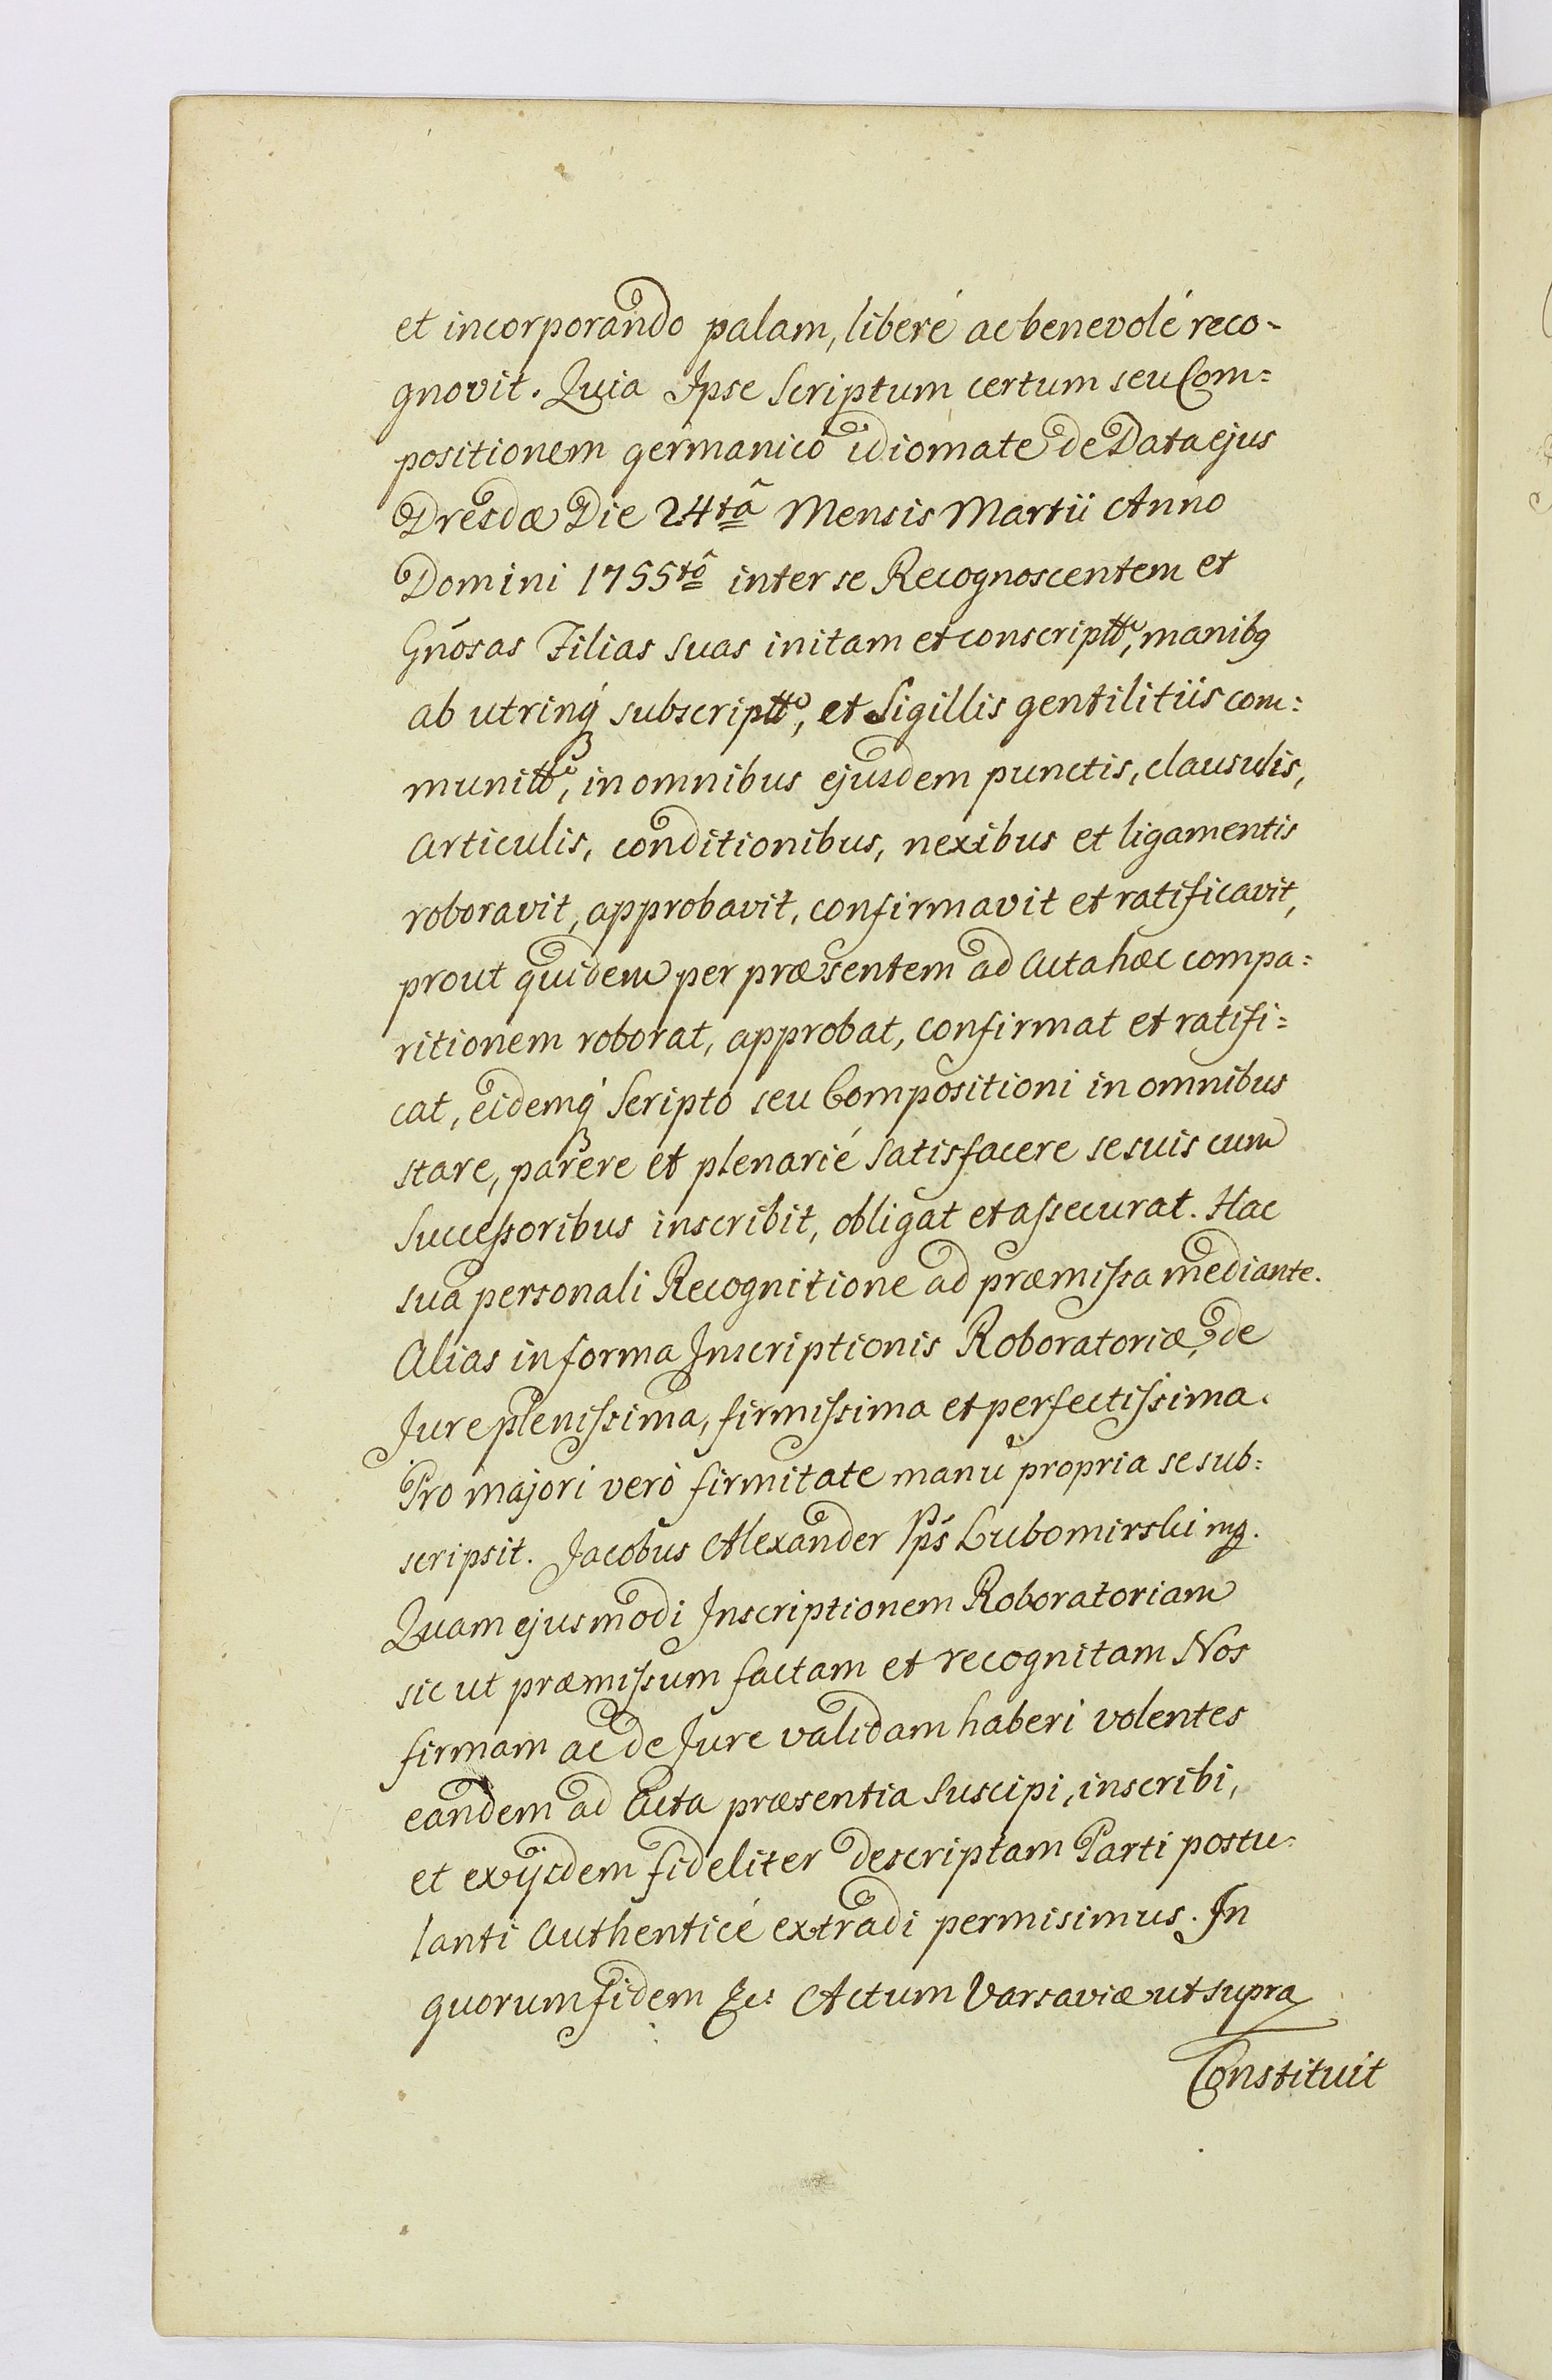 et incorporando palam, liberé ac benevolé reco-
gnovit. Quia Ipse Scriptum certum seu Com=
positionem germanico idiomate de Data ejus
Dresdæ Die 24tâ Mensis Martii Anno
Domini 1755tô inter se Recognoscentem et
Gnosas Filias suas initam et conscriptt, manibq
ab utrinq subscriptt, et Sigillis gentilitiis com:
munitt, in omnibus ejusdem punctis, clausulis,
articulis, conditionibus, nexibus et ligamentis
roboravit, approbavit, confirmavit et ratificavit,
prout quidem per præsentem ad Acta hæc compa=
ritionem roborat, approbat, confirmat et ratifi=
cat, eidemq Scripto seu Compositioni in omnibus
stare, parere et plenarié satisfacere se suis cum
Successoribus inscribit, obligat et assecurat. Hac
sua personali Recognitione ad præmissa mediante.
Alias in forma Inscriptionis Roboratoriæ, de
Jure plenissima, firmissima et perfectissima.
Pro majori veró firmitate manu propria se sub=
scripsit. Jacobus Alexander Pps Lubomirski mp.
Quam ejusmodi Inscriptionem Roboratoriam
sic ut præmissum factam et recognitam Nos
firmam ac de Jure validam haberi volentes
eandem ad Acta præsentia suscipi, inscribi,
et ex ijsdem fideliter descriptam Parti postu=
lanti Authenticé extradi permisimus. In
quorum fidem &c: Actum Varsaviæ ut supra
Constituit